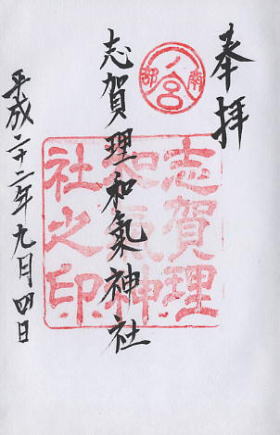 奉拝
志賀理和氣神社
平成二十二年九月四日
志賀理
和氣神
社之印